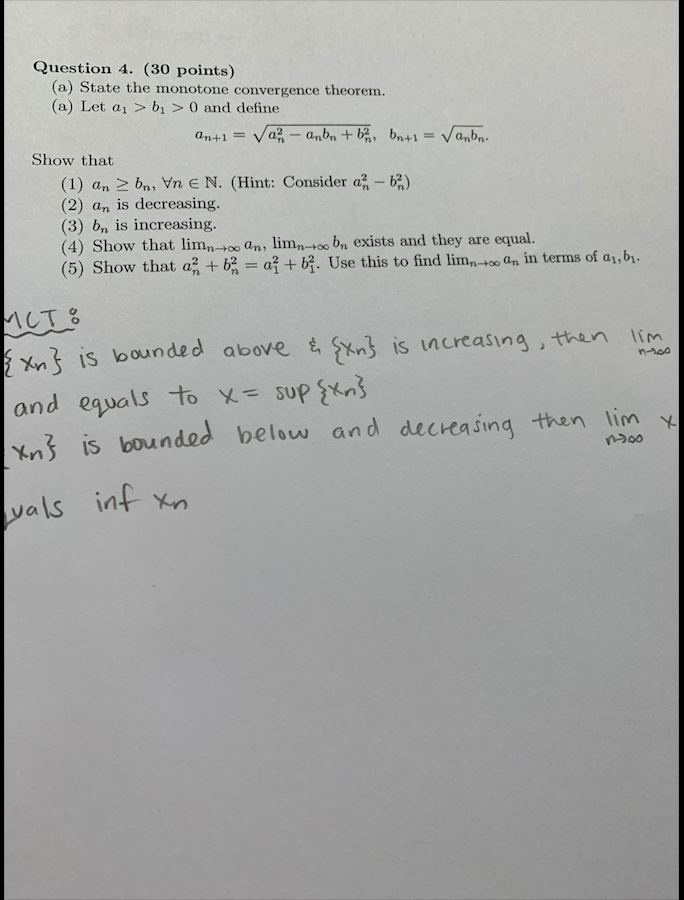 Question 4. (30 points)
(a) State the monotone convergence theorem.
(a) Let a₁ > b₁ > 0 and define
aₙ₊₁ = √(aₙ² − aₙbₙ + bₙ²), bₙ₊₁ = √(aₙbₙ).
Show that
(1) aₙ ≥ bₙ, ∀n ∈ ℕ. (Hint: Consider aₙ² − bₙ²)
(2) aₙ is decreasing.
(3) bₙ is increasing.
(4) Show that limₙ→∞ aₙ, limₙ→∞ bₙ exists and they are equal.
(5) Show that aₙ² + bₙ² = a₁² + b₁². Use this to find limₙ→∞ aₙ in terms of a₁, b₁.
MCT:
{xₙ} is bounded above & {xₙ} is increasing, then lim n→∞
and equals to x = sup {xₙ}
xₙ} is bounded below and decreasing then lim n→∞ x
uals inf xₙ